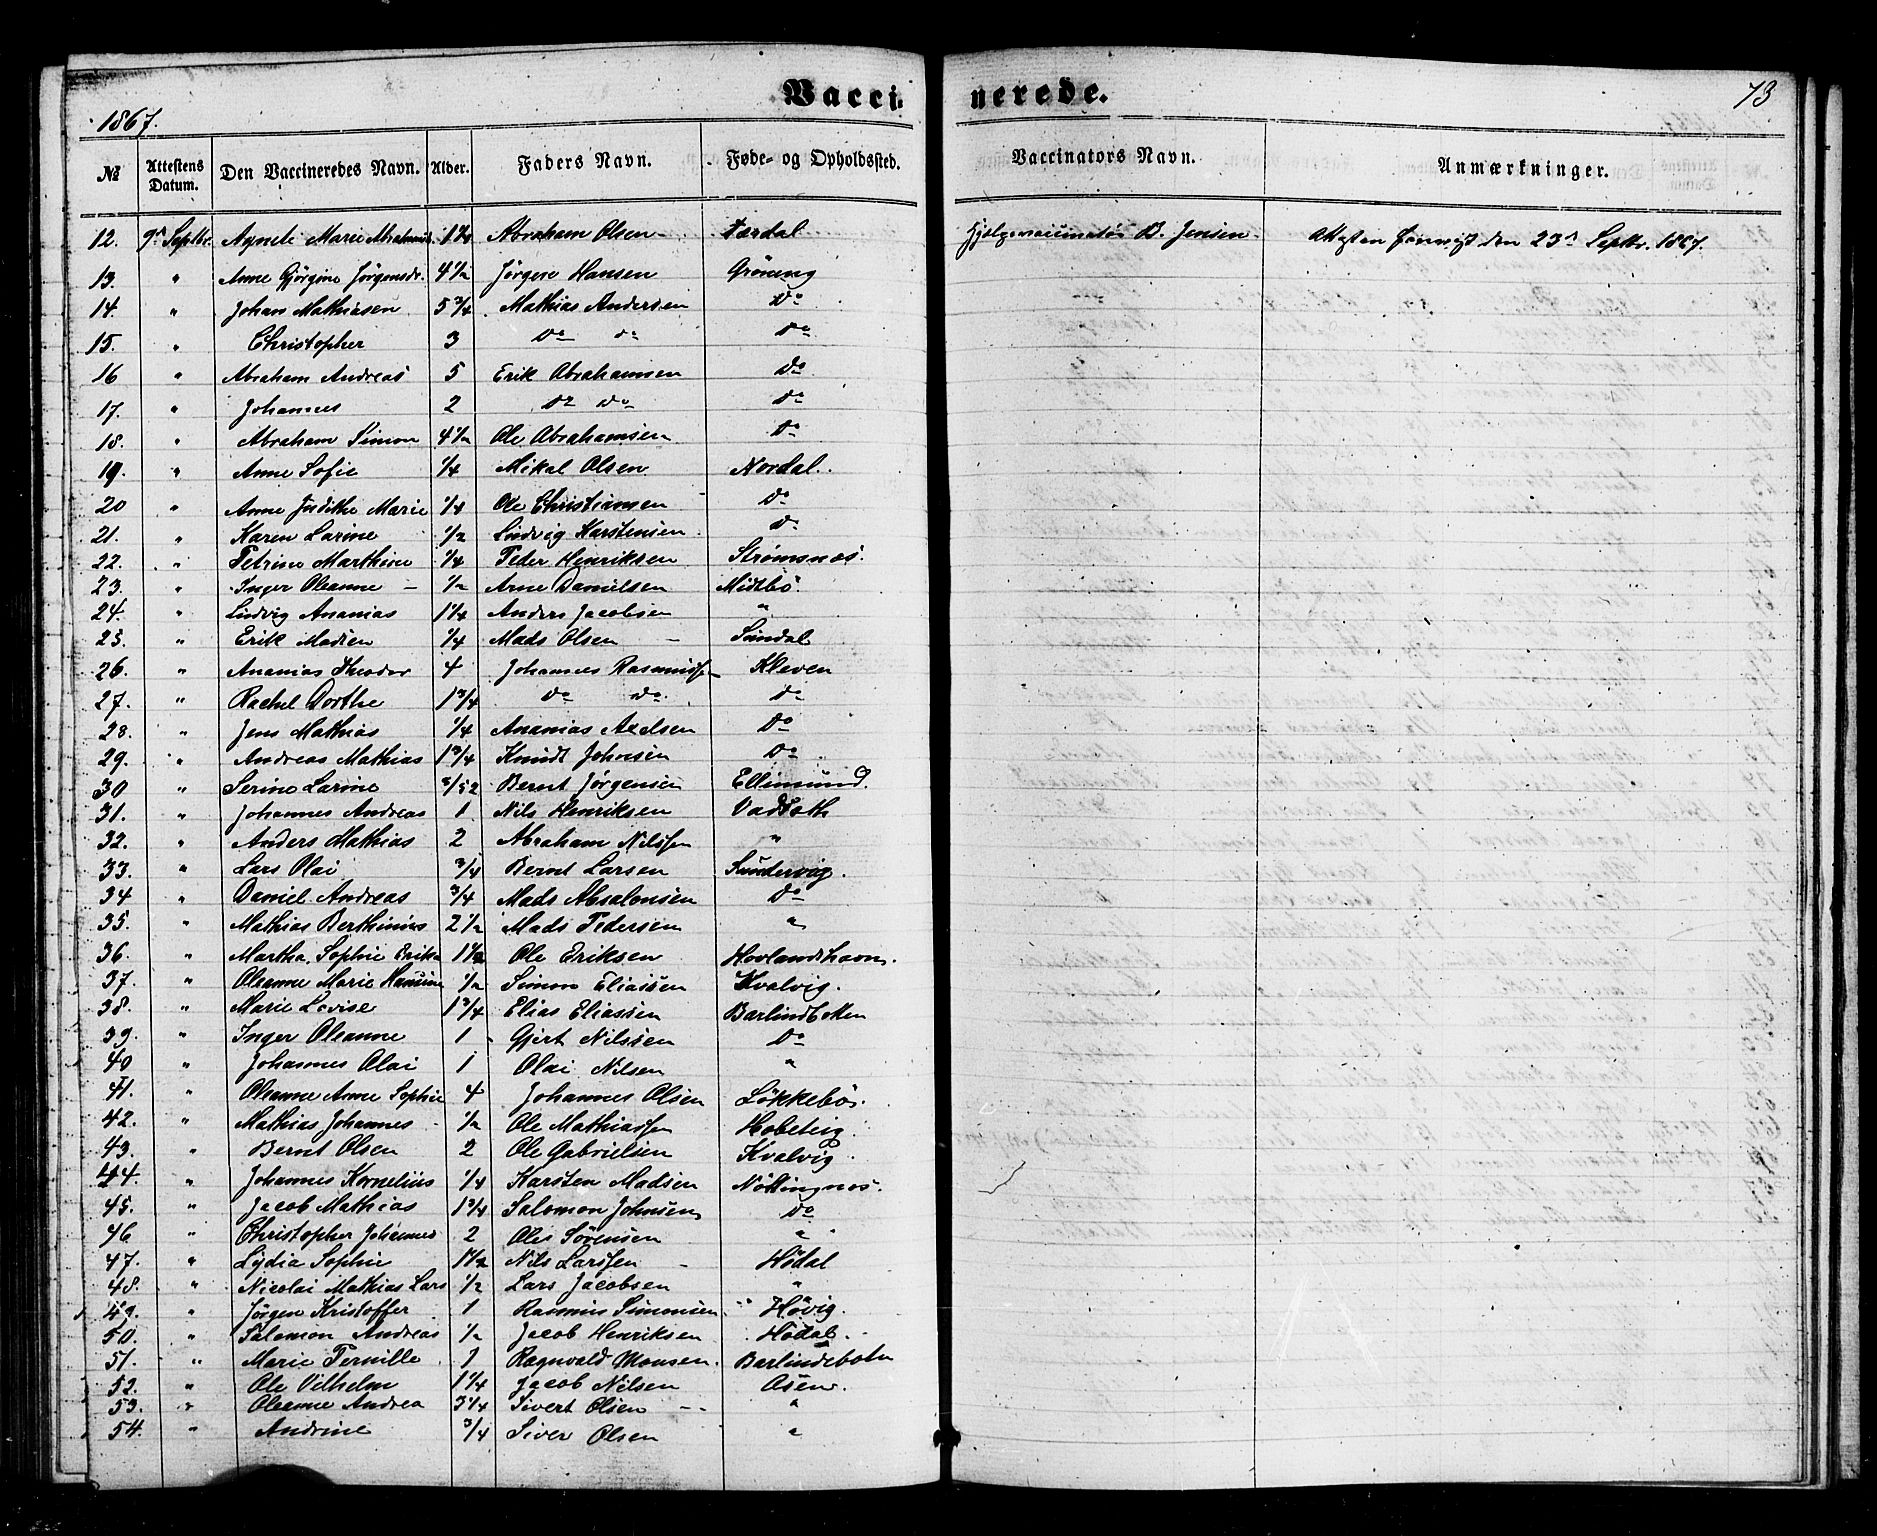 Vacci- nerede.
73
1867.
№ Attestens Datum. Den Vaccineredes Navn. Alder. Faders Navn. Føde- og Opholdssted. Vaccinators Navn. Anmærkninger.
12. 9de Septbr. Agnete Marie 1¼ Abraham Olsen Førdal B. Jensen Attesten den 23de Septbr. 1867.
13. " Anne Gjørgine Jørgensdr. 4½ Jørgen Hansen Grøneng
14. " Johan Mathiasen 5¾ Mathias Andersen Do
15. " Christopher 3 Do do do
16 " Abraham Andreas 5 Erik Abrahamsen Do
17. " Johannes 2 do do do
18. " Abraham Simon 4½ Ole Abrahamsen Do
19. " Anne Sofie ¼ Mikal Olsen Nordal.
20 " Anne Judithe Marie ¼ Ole Christiansen do
21. " Karen Larine ½ Ludvig Karstensen do
22. " Petrine Marthine ¼ Peder Henriksen Strømsnæs.
23. " Inger Oleanne ½ Arne Danielsen Midtbö.
24. " Ludvig Ananias 1¼ Anders Jacobsen "
25. " Erik Madien ¼ Mads Olsen Sundal
26. " Ananias Theodor 4 Johannes Rasmussen Kleven
27. " Rachel Dorthe 1¾ do do. do
28. " Jens Mathias ¼ Ananias Axelsen Do
29. " Andreas Mathias 1¾ Knudt Johnsen Do
30 " Serine Larine 3/52 Bernt Jørgensen Ellimund.
31. " Johannes Andreas 1 Nils Henriksen Vadsoth
32. " Anders Mathias 2 Abraham Nilssen "
33. " Lars Olai ¾ Bernt Larsen Sundervåg.
34 " Daniel Andreas ¾ Mads Absalonsen Do
35. " Mathias Berthinius 2½ Mads Pedersen "
36. " Martha Sophie Erika 1½ Ole Eriksen Hovlandshavn.
37. " Oleanne Marie Hansine ½ Simon Eliassen Kvalvig.
38. " Marie Lovise 1¾ Elias Eliassen Barlindbotten
39. " Inger Oleanne 1 Gjert Nilssen Do
40 " Johannes Olai 1 Olai Nilsen "
41. " Oleanne Anne Sophie 4 Johannes Olsen Løkkebö.
42. " Mathias Johannes ½ Ole Mathiassen Hobeteig.
43. " Bernt Olsen 2 Ole Gabrielsen Kvalvig
44. " Johannes Kornelius ¼ Karsten Madsen Nöttingnæs.
45. " Jacob Mathias 1¾ Salomon Johnsen Do
46 " Christopher Johannes 2 Ole Sörensen "
47. " Lydia Sophie 1½ Nils Larssen Hödal
48. " Nicolai Mathias Lars ½ Lars Jacobsen "
49. " Jørgen Kristoffer 1 Rasmus Simonsen Hövig.
50. " Salomon Andreas ½ Jacob Henriksen Hödal.
51. " Marie Pernille 1 Ragnvald Monsen. Barlindebotn
52. " Ole Vilhelm 1¼ Jacob Nilsen Åsen.
53. " Oleanne Andrea 3¼ Sivert Olsen "
54. " Andrine ¾ Siver Olsen "